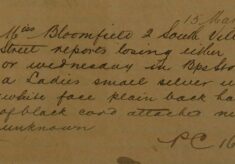 15 Mar
Miss Bloomfield 2 South Vill
Street reports losing either
or wednesday in Bps Stor
a Ladies small silver w
white face plain back ha
of black cord attached n
unknown
PC 16